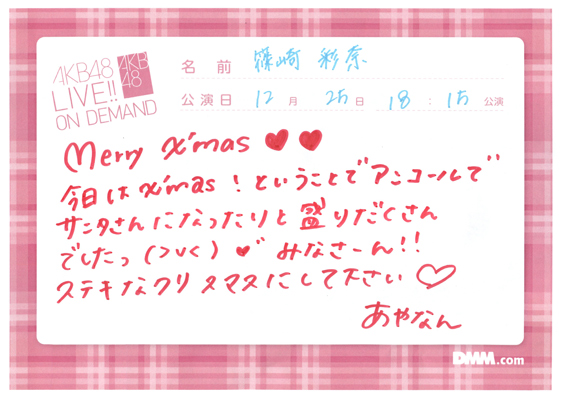 AKB48
LIVE!!
ON DEMAND
AKB
48
名前 篠崎 彩奈
公演日 12月 25日 18:15 公演
Merry X'mas ♥♥
今日はX'mas!ということでアンコールで
サンタさんになったりと盛りだくさん
でしたっ(>v<)♥ みなさーん!!
ステキなクリスマスにして下さい♡
あやなん
DMM.com